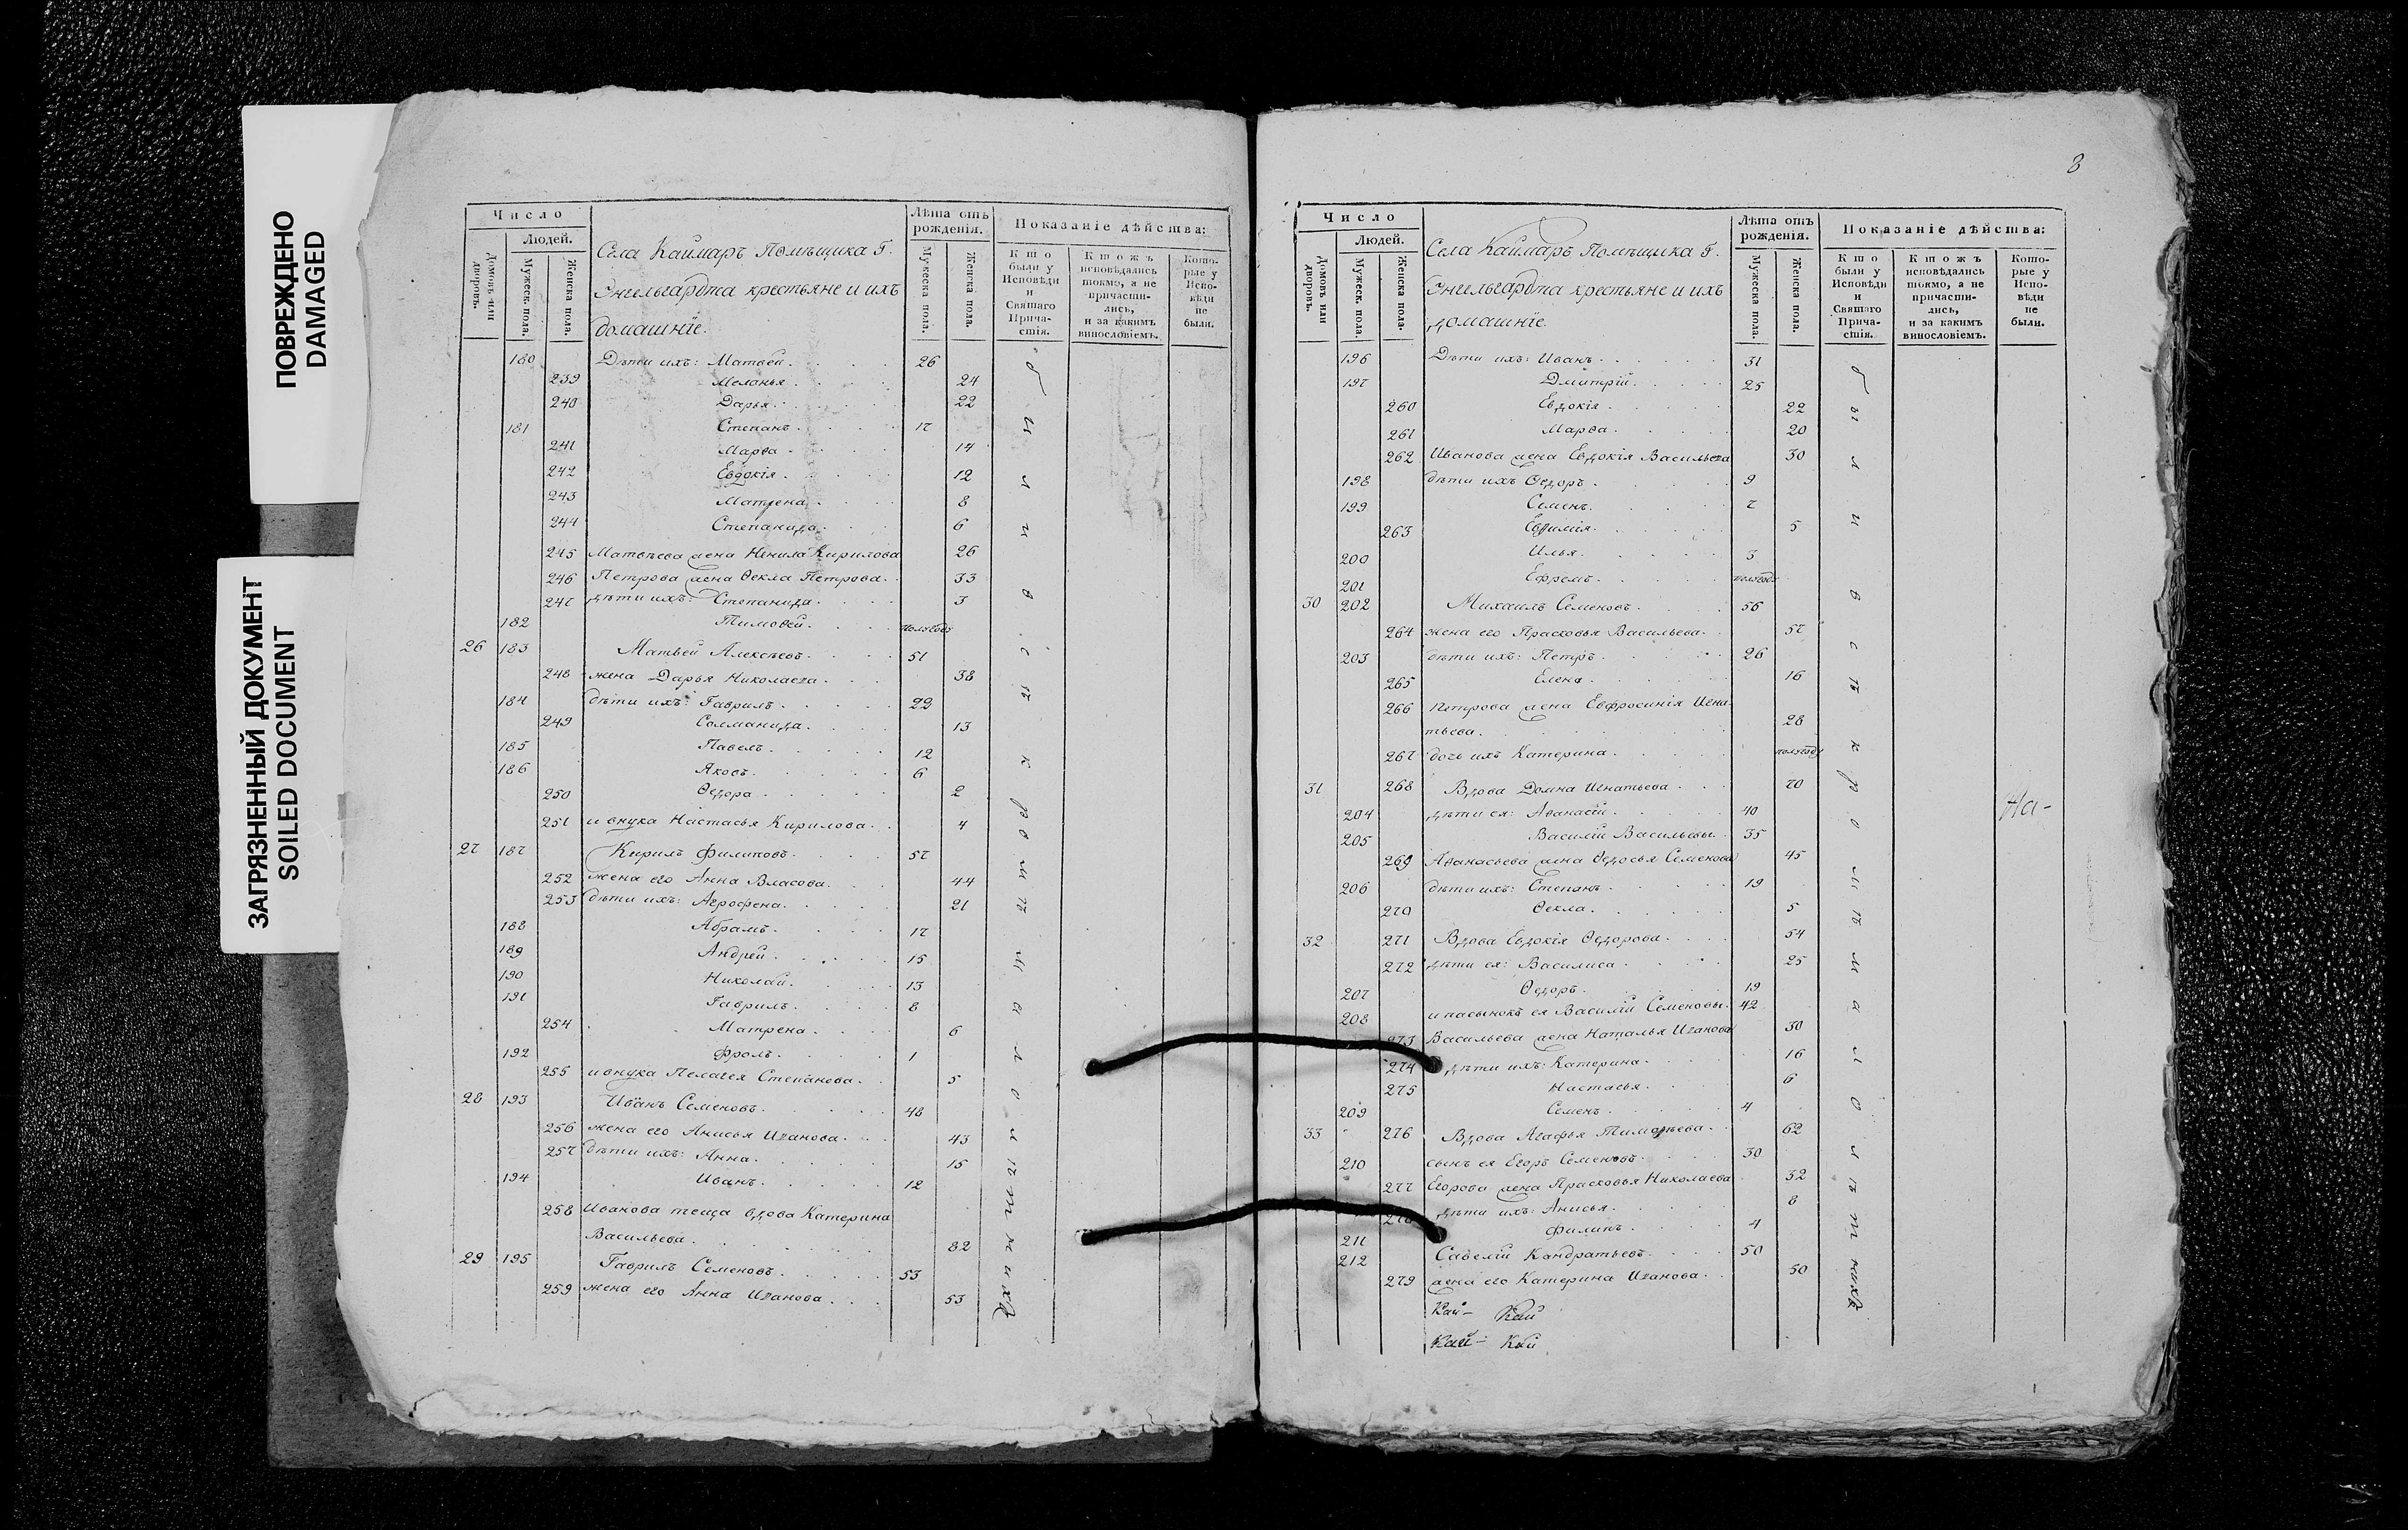 ПОВРЕЖДЕНО
DAMAGED
ЗАГРЯЗНЕННЫЙ ДОКУМЕНТ
SOILED DOCUMENT
Число
Людей.
Домовъ или дворовъ.
Мужеск. пола.
Женска пола.
Села Каймаръ Помѣщика Г.
Энгельгардта крестьяне и ихъ
домашніе.
Лѣта отъ рожденія.
Мужеска пола.
Женска пола.
Показаніе дѣйства:
Кто были у Исповѣди и Святаго Причастія.
Ктожъ исповѣдались токмо, а не причастились, и за какимъ винословіемъ.
Которые у Исповѣди не были.
180 Дѣти ихъ: Матвей 26
239 Меланья 24
240 Дарья 22
181 Степанъ 17
241 Марѳа 14
242 Евдокія 12
243 Матрена 8
244 Степанида 6
245 Матвѣева жена Ненила Кирилова 26
246 Петрова жена Ѳекла Петрова 33
247 дѣти ихъ: Степанида 3
182 Тимоѳей полугоду
26 183 Матвей Алексѣевъ 51
248 жена Дарья Николаева 38
184 дѣти ихъ: Гаврилъ 22
249 Соломанида 13
185 Павелъ 12
186 Яковъ 6
250 Ѳедора 2
251 и внука Настасья Кирилова 4
27 187 Кирилъ Филиповъ 57
252 жена его Анна Власова 44
253 дѣти ихъ: Агрофена 21
188 Абрамъ 17
189 Андрей 15
190 Николай 13
191 Гаврилъ 8
254 Матрена 6
192 Фролъ 1
255 и внука Пелагея Степанова 5
28 193 Иванъ Семеновъ 48
256 жена его Анисья Иванова 43
257 дѣти ихъ: Анна 15
194 Иванъ 12
258 Иванова теща вдова Катерина
Васильева 82
29 195 Гаврилъ Семеновъ 53
259 жена его Анна Иванова 53
8
Число
Людей.
Домовъ или дворовъ.
Мужеск. пола.
Женска пола.
Села Каймаръ Помѣщика Г.
Энгельгардта крестьяне и ихъ
домашніе.
Лѣта отъ рожденія.
Мужеска пола.
Женска пола.
Показаніе дѣйства:
Кто были у Исповѣди и Святаго Причастія.
Ктожъ исповѣдались токмо, а не причастились, и за какимъ винословіемъ.
Которые у Исповѣди не были.
196 Дѣти ихъ: Иванъ 31
197 Дмитрій 25
260 Евдокія 22
261 Марѳа 20
262 Иванова жена Евдокія Васильева 30
198 дѣти ихъ Ѳедоръ 9
199 Семенъ 7
263 Евфимія 5
200 Илья 3
201 Ефремъ полугоду
30 202 Михаилъ Семеновъ 56
264 жена его Прасковья Васильева 57
203 дѣти ихъ: Петръ 26
265 Елена 16
266 Петрова жена Евфросинія Игна-
тьева 28
267 дочь ихъ Катерина полугоду
31 268 Вдова Домна Игнатьева 70
204 дѣти ея: Аѳанасій 40
205 Василій Васильевы 35
269 Аѳанасьева жена Ѳедосья Семенова 45
206 дѣти ихъ: Степанъ 19
270 Ѳекла 5
32 271 Вдова Евдокія Ѳедорова 54
272 дѣти ея: Василиса 25
207 Ѳедоръ 19
208 и пасынокъ ея Василій Семеновы 42
273 Васильева жена Наталья Иванова 30
274 дѣти ихъ: Катерина 16
275 Настасья 6
209 Семенъ 4
33 276 Вдова Агафья Тимоѳѣева 62
210 сынъ ея Егоръ Семеновъ 30
277 Егорова жена Прасковья Николаева 32
278 дѣти ихъ: Анисья 8
211 Филипъ 4
212 Савелій Кандратьевъ 50
279 жена его Катерина Иванова 50
Кай- Кай
Кай- Кай
На-